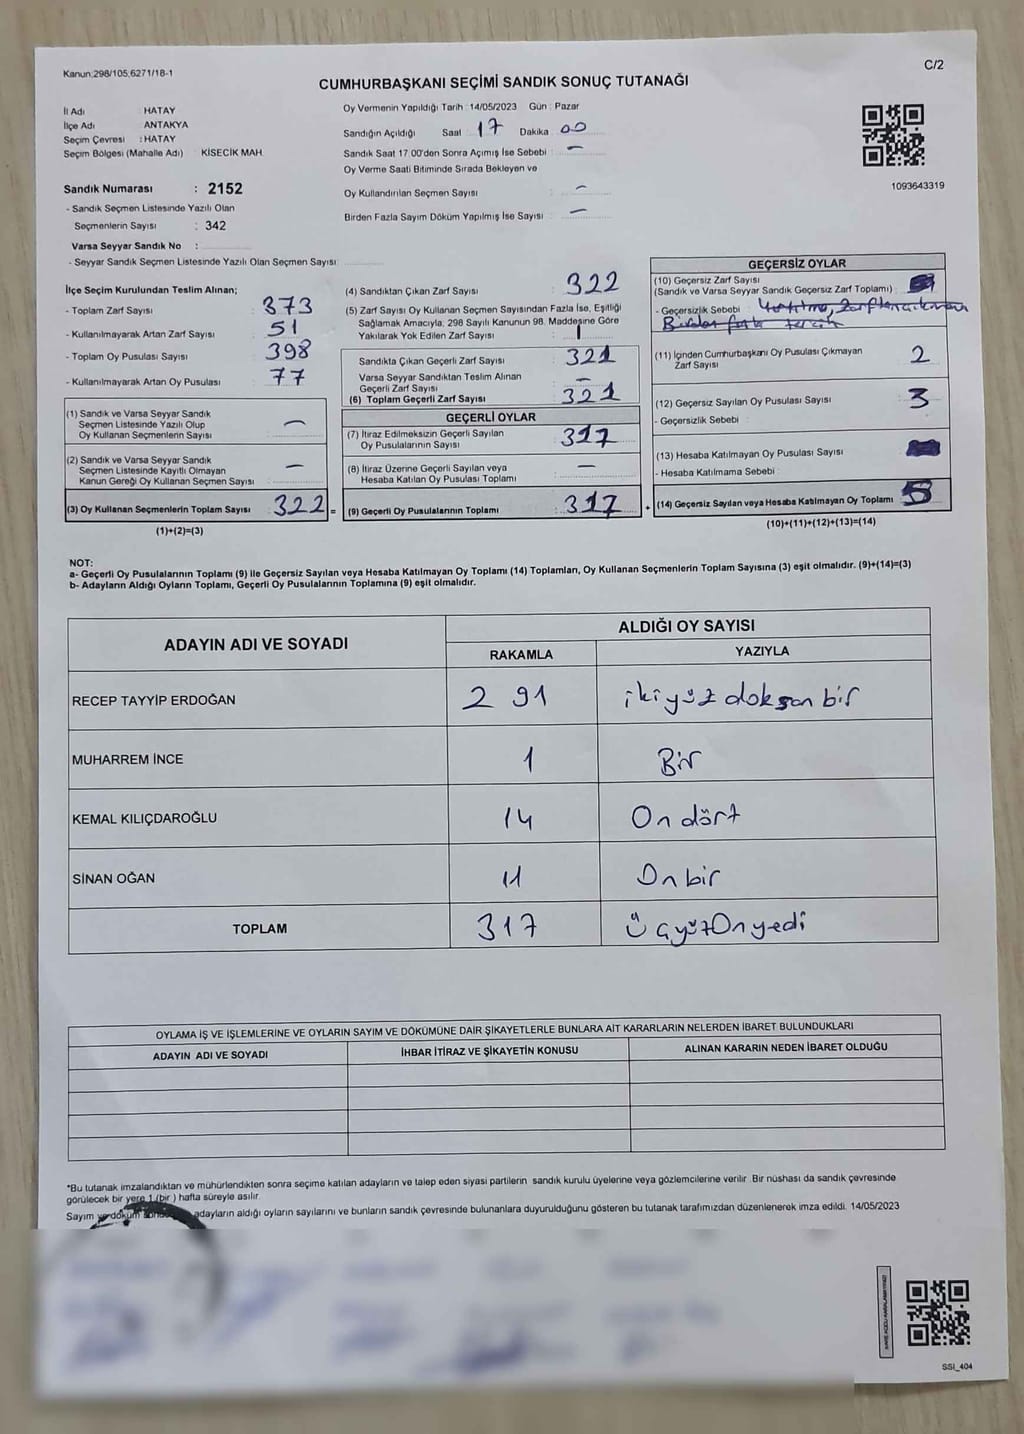 Kanun:298/105,6271/18-1
C/2
CUMHURBAŞKANI SEÇİMİ SANDIK SONUÇ TUTANAĞI
İl Adı HATAY
İlçe Adı ANTAKYA
Seçim Çevresi : HATAY
Seçim Bölgesi (Mahalle Adı) KİSECİK MAH.
Oy Vermenin Yapıldığı Tarih : 14/05/2023 Gün : Pazar
Sandığın Açıldığı Saat : 17 Dakika : 00
Sandık Saat 17:00'den Sonra Açımış İse Sebebi : —
Oy Verme Saati Bitiminde Sırada Bekleyen ve
Oy Kullandırılan Seçmen Sayısı : —
Birden Fazla Sayım Döküm Yapılmış İse Sayısı : —
1093643319
Sandık Numarası : 2152
- Sandık Seçmen Listesinde Yazılı Olan
Seçmenlerin Sayısı : 342
Varsa Seyyar Sandık No :
- Seyyar Sandık Seçmen Listesinde Yazılı Olan Seçmen Sayısı:
İlçe Seçim Kurulundan Teslim Alınan;
- Toplam Zarf Sayısı : 373
- Kullanılmayarak Artan Zarf Sayısı : 51
- Toplam Oy Pusulası Sayısı : 398
- Kullanılmayarak Artan Oy Pusulası : 77
(1) Sandık ve Varsa Seyyar Sandık
Seçmen Listesinde Yazılı Olup
Oy Kullanan Seçmenlerin Sayısı : —
(2) Sandık ve Varsa Seyyar Sandık
Seçmen Listesinde Kayıtlı Olmayan
Kanun Gereği Oy Kullanan Seçmen Sayısı : —
(3) Oy Kullanan Seçmenlerin Toplam Sayısı : 322 =
(1)+(2)=(3)
(4) Sandıktan Çıkan Zarf Sayısı : 322
(5) Zarf Sayısı Oy Kullanan Seçmen Sayısından Fazla İse, Eşitliği
Sağlamak Amacıyla, 298 Sayılı Kanunun 98. Maddesine Göre
Yakılarak Yok Edilen Zarf Sayısı : 1
Sandıkta Çıkan Geçerli Zarf Sayısı : 321
Varsa Seyyar Sandıktan Teslim Alınan
Geçerli Zarf Sayısı : —
(6) Toplam Geçerli Zarf Sayısı : 321
GEÇERLİ OYLAR
(7) İtiraz Edilmeksizin Geçerli Sayılan
Oy Pusulalarının Sayısı : 317
(8) İtiraz Üzerine Geçerli Sayılan veya
Hesaba Katılan Oy Pusulası Toplamı : —
(9) Geçerli Oy Pusulalarının Toplamı : 317 +
GEÇERSİZ OYLAR
(10) Geçersiz Zarf Sayısı
(Sandık ve Varsa Seyyar Sandık Geçersiz Zarf Toplamı) :
- Geçersizlik Sebebi :
Birden fazla tercih
(11) İçinden Cumhurbaşkanı Oy Pusulası Çıkmayan
Zarf Sayısı : 2
(12) Geçersiz Sayılan Oy Pusulası Sayısı : 3
- Geçersizlik Sebebi :
(13) Hesaba Katılmayan Oy Pusulası Sayısı :
- Hesaba Katılmama Sebebi :
(14) Geçersiz Sayılan veya Hesaba Katılmayan Oy Toplamı : 5
(10)+(11)+(12)+(13)=(14)
NOT:
a- Geçerli Oy Pusulalarının Toplamı (9) ile Geçersiz Sayılan veya Hesaba Katılmayan Oy Toplamı (14) Toplamları, Oy Kullanan Seçmenlerin Toplam Sayısına (3) eşit olmalıdır. (9)+(14)=(3)
b- Adayların Aldığı Oyların Toplamı, Geçerli Oy Pusulalarının Toplamına (9) eşit olmalıdır.
ADAYIN ADI VE SOYADI
ALDIĞI OY SAYISI
RAKAMLA YAZIYLA
RECEP TAYYİP ERDOĞAN 291 ikiyüz doksan bir
MUHARREM İNCE 1 Bir
KEMAL KILIÇDAROĞLU 14 On dört
SİNAN OĞAN 11 On bir
TOPLAM 317 ÜçyüzOnyedi
OYLAMA İŞ VE İŞLEMLERİNE VE OYLARIN SAYIM VE DÖKÜMÜNE DAİR ŞİKAYETLERLE BUNLARA AİT KARARLARIN NELERDEN İBARET BULUNDUKLARI
ADAYIN ADI VE SOYADI İHBAR İTİRAZ VE ŞİKAYETİN KONUSU ALINAN KARARIN NEDEN İBARET OLDUĞU
*Bu tutanak imzalandıktan ve mühürlendikten sonra seçime katılan adayların ve talep eden siyasi partilerin sandık kurulu üyelerine veya gözlemcilerine verilir. Bir nüshası da sandık çevresinde
görülecek bir yere 1 (bir ) hafta süreyle asılır.
Sayım ve döküm adayların aldığı oyların sayılarını ve bunların sandık çevresinde bulunanlara duyurulduğunu gösteren bu tutanak tarafımızdan düzenlenerek imza edildi. 14/05/2023
SSI_404